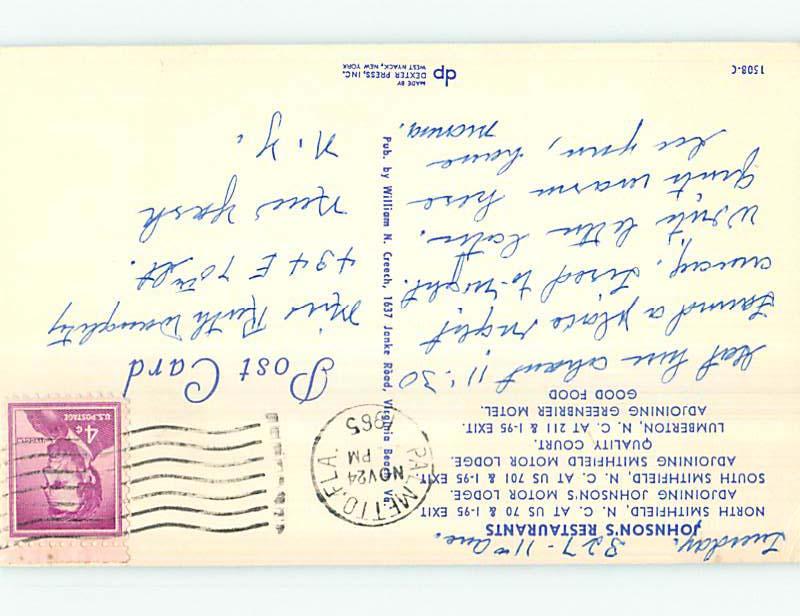 Tuesday, 327-11th ave.
JOHNSON'S RESTAURANTS
NORTH SMITHFIELD, N. C. AT US 70 & I-95 EXIT
ADJOINING JOHNSON'S MOTOR LODGE.
SOUTH SMITHFIELD, N. C. AT US 701 & I-95 EXIT
ADJOINING SMITHFIELD MOTOR LODGE.
QUALITY COURT.
LUMBERTON, N. C. AT 211 & I-95 EXIT.
ADJOINING GREENBRIER MOTEL.
GOOD FOOD
Got here about 11:30
Found a place right
away. Tired to-night.
Write letter later.
Quite warm here
See you, home
Momma.
1508-C
Pub. by William N. Creech, 1637 Janke Road, Virginia Beach, Va.
PALMETTO, FLA.
NOV 24
PM
1965
U.S. POSTAGE
4¢
Post Card
Miss Ruth
434 E 70th St.
New York
N. Y.
dp
MADE BY
DEXTER PRESS, INC.
WEST NYACK, NEW YORK